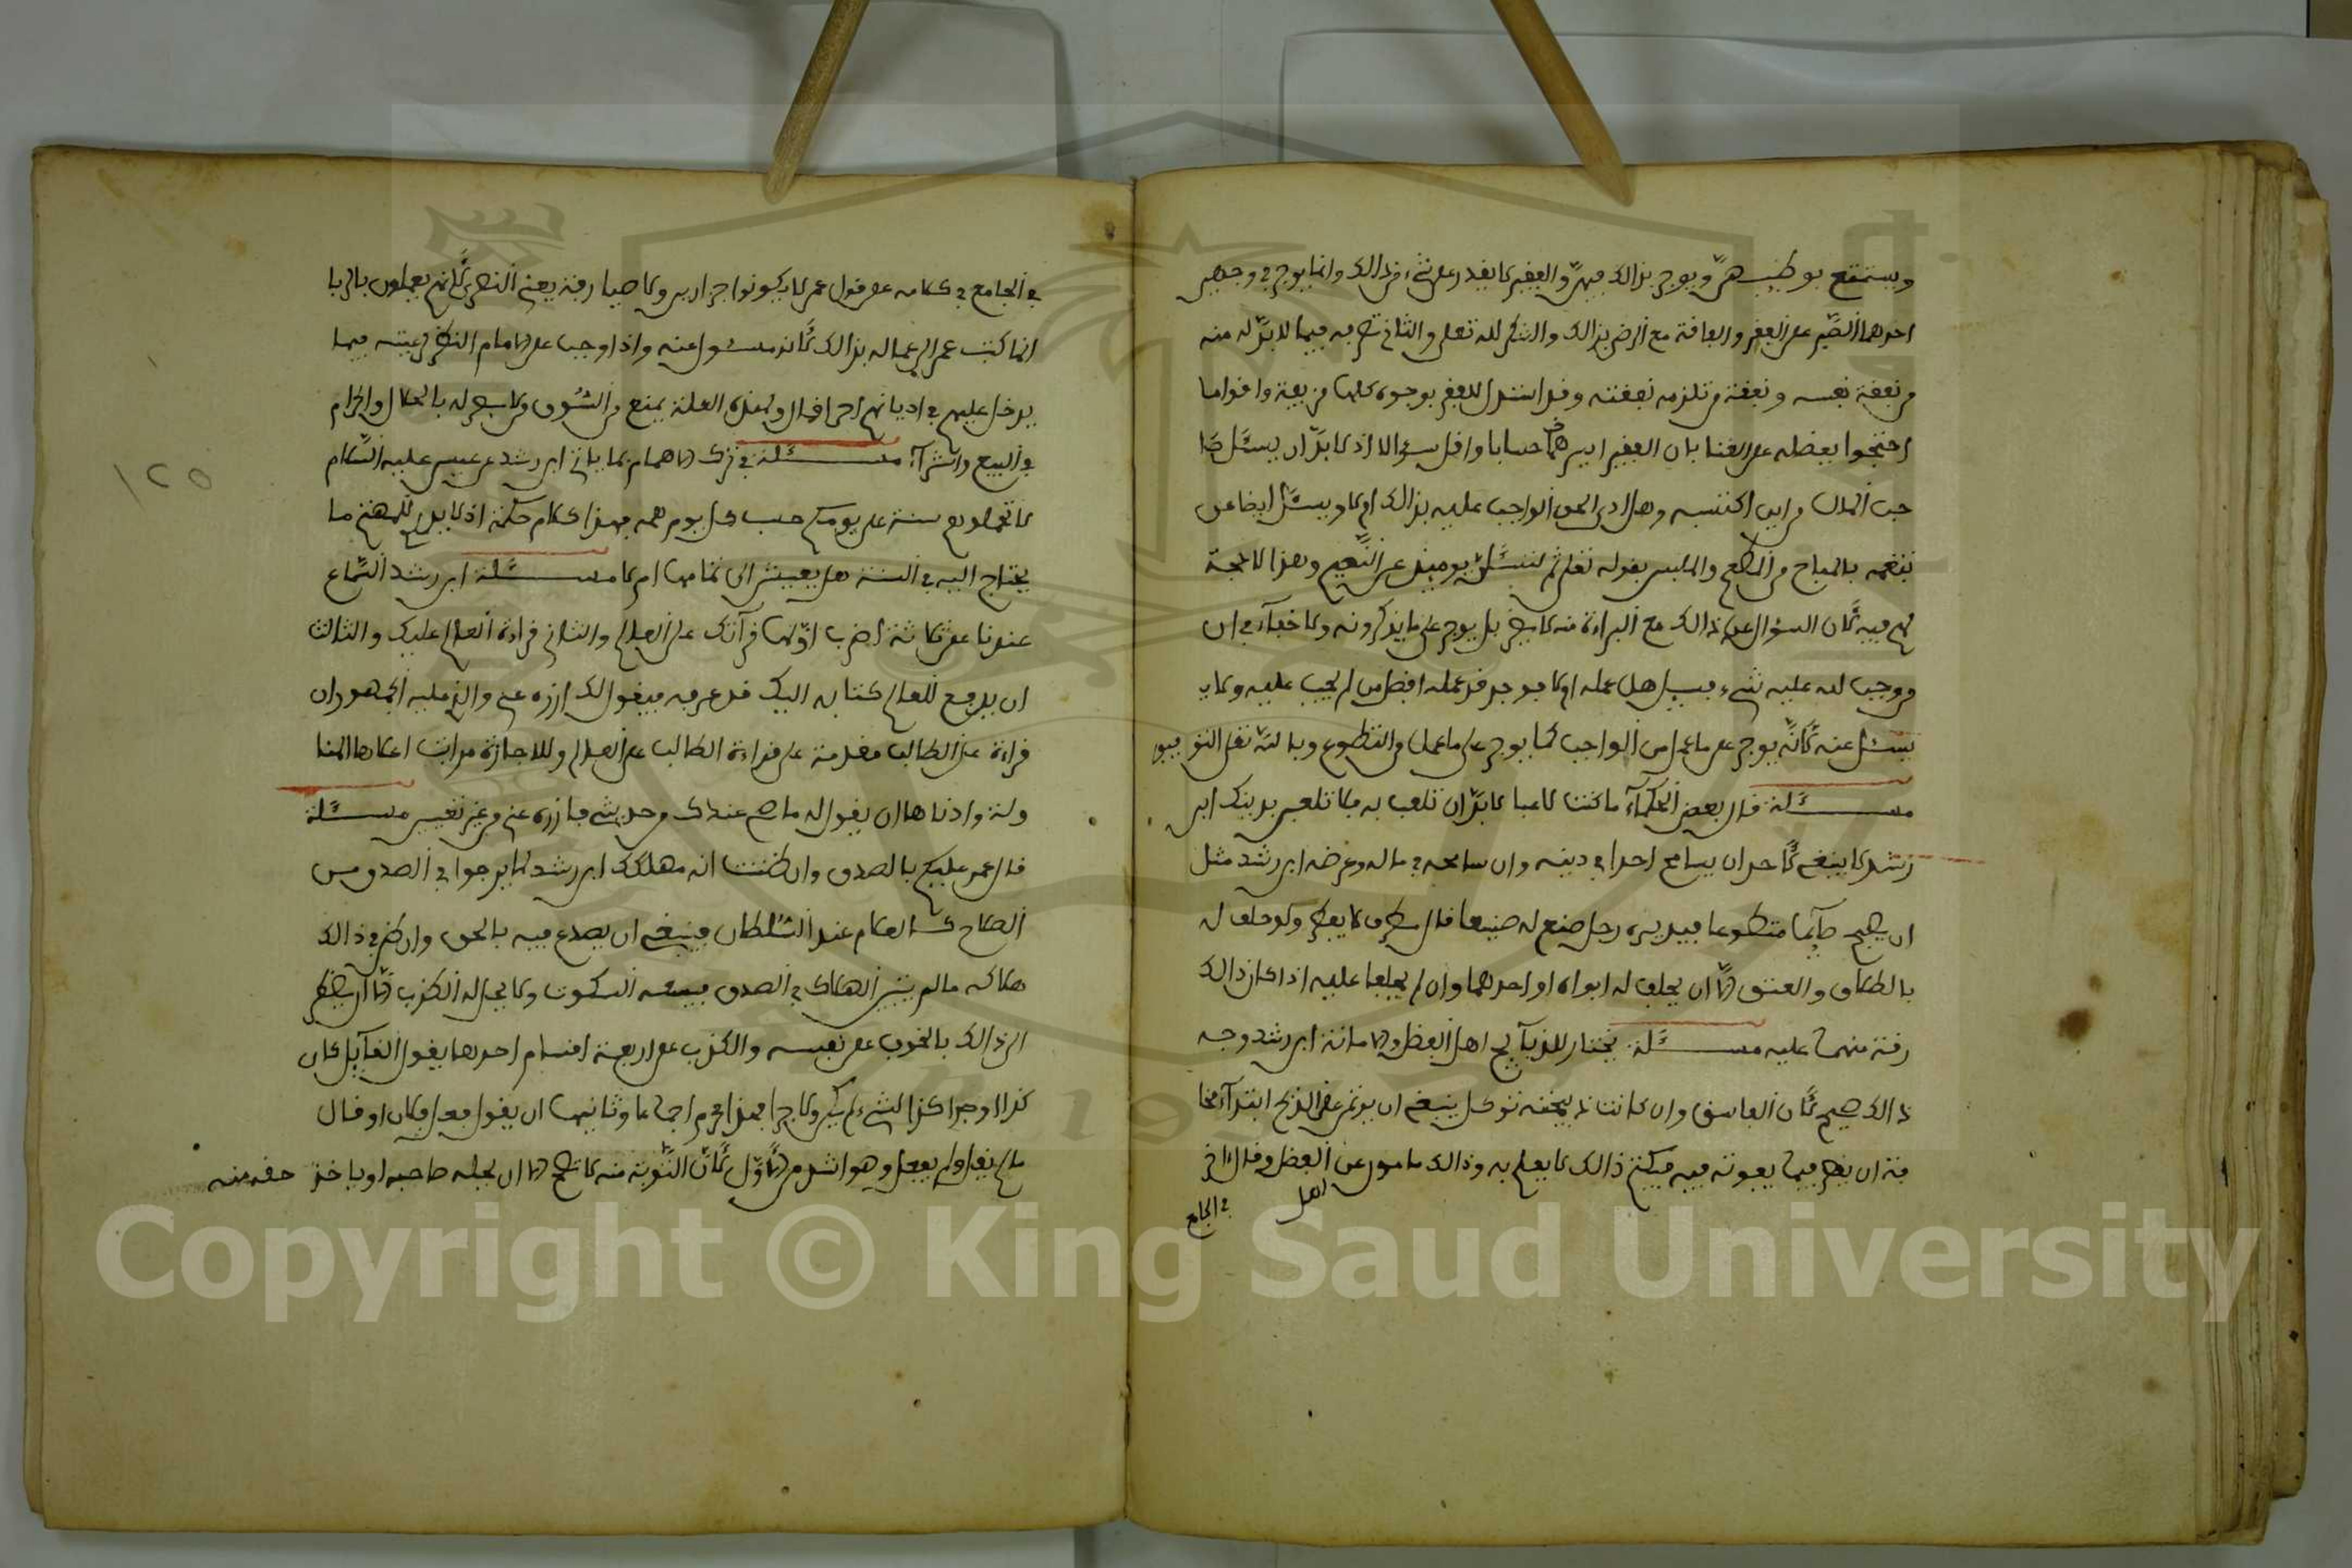 ويستمتع بوطئهن ويوجر بذالك فيهن والفقير لا يقدر على شيء من ذالك وانما يوجر في وجهين
احدهما الصبر على الفقر والفاقة مع الرضى بذالك والشكر لله تعلى والثاني تصرفه فيما لا بد له منه
من نفقة نفسه ونفقة من تلزمه نفقته وقد استدل للفقر بوجوه كلها ضعيفة واقواما
احتجوا بفضله على الغنا بان الفقير ايسرهما حسابا واقل سؤالا اذ لا بد ان يسئل صا
حب المال من اين اكتسبه وهل ادى الحق الواجب عليه بذالك ام لا ويسئل ايضا عن
تنعمه بالمباح من المطعم والملبس بقوله تعلى ثم لتسئلن يومئذ عن النعيم وهذا لا حجة
لهم فيه لان السؤال عن ذالك مع البراءة منه لا يضر بل يوجر على ما يذكرونه ولا خفاء في ان
من وجب لله عليه شيء فيسئل هل عمله ام لا فوجد قد عمله افضل من لم يجب عليه ولا
يسئل عنه لانه يوجر على ما عمل من الواجب كما يوجر على ما عمل من التطوع وبالله تعلى التوفيق
مسئلة قال بعض الحكماء ما كنت لاعبا لا بد ان تلعب به فلا تلعبن بدينك ابن
رشد لا ينبغي لاحد ان يسامح احدا في دينه وان سامحه في ماله وعرضه ابن رشد مثل
ان يصبح صائما متطوعا فيدسه رجل صنع له صنيعا قال مطرف لا يفطر ولو حلف له
بالطلاق والعتق الا ان يحلف له ابواه او احدهما وان لم يحلفا عليه اذا كان ذالك
رقة منهما عليه مسئلة يختار للذبائح اهل الفضل والامانة ابن رشد وجه
ذالك صحيح لان الفاسق وان كانت ذبيحته توكل ينبغي ان يوتمن على الذبح ابتداء مخا
فة ان يفرط فيما يفوته فيه فيكتم ذالك لا يعلم به وذالك مامون عن اهل الفضل وقال ايضا
في الجامع
في الجامع في كلامه على قول عمر لا يكونوا جزارين ولا صيارفة يعني النصارى لانهم يعملون بالربا
انما كتب عمر الى عماله بذالك لانه مسئول عنه واذا وجب على الامام النظر لرعيته فيما
يدخل عليهم في اديانهم احرا قال ولهذه العلة يمنع من السوق من لا بصر له بالحلال والحرام
في البيع والشراء مسئلة في ترك الاهتمام بما ياتي ابن رشد عن عيسى عليه السلام
لا تحملوا هم سنة على يومكم حسب كل يوم همه فهذا كلام حكمة اذ لا يدري المهتم بما
يحتاج اليه في السنة هل يعيش الى تمامها ام لا مسئلة ابن رشد السماع
عندنا على ثلاثة اضرب اولها قرآتك على العالم والثاني قراءة العالم عليك والثالث
ان يدفع العالم كتابه اليك قد عرفه فيقول لك اروه عني والذي عليه الجمهور ان
قراءة على الطالب مقدمة على قراءة الطالب على العالم وللاجازة مراتب اعلاها المنا
ولة وادناها ان يقول له ما صح عندك من حديثي فاروه عني من غير تعيين مسئلة
قال عمر عليكم بالصدق وان ظننت انه مهلكك ابن رشد لما يرجوا في الصدق من
الصلاح كالكلام عند السلطان فينبغي ان يصدع فيه بالحق وان ظن في ذالك
هلاكه ما لم يتيقن الهلاك في الصدق فيسعه السكوت ولا يحل له الكذب الا ان يضطر
الى ذالك بالخوف على نفسه والكذب على اربعة اقسام احدها يقول القائل كان
كذا او جرا كذا لشيء لم يكن ولا جرا فهذا محرم اجماعا وثانيها ان يقول فعل فلان او قال
ما لم يقل ولم يفعل وهو اشد من الاول لان التوبة منه لا تصح الا ان يحله صاحبه او ياخذ حقه منه
١٢٥
Copyright © King Saud University